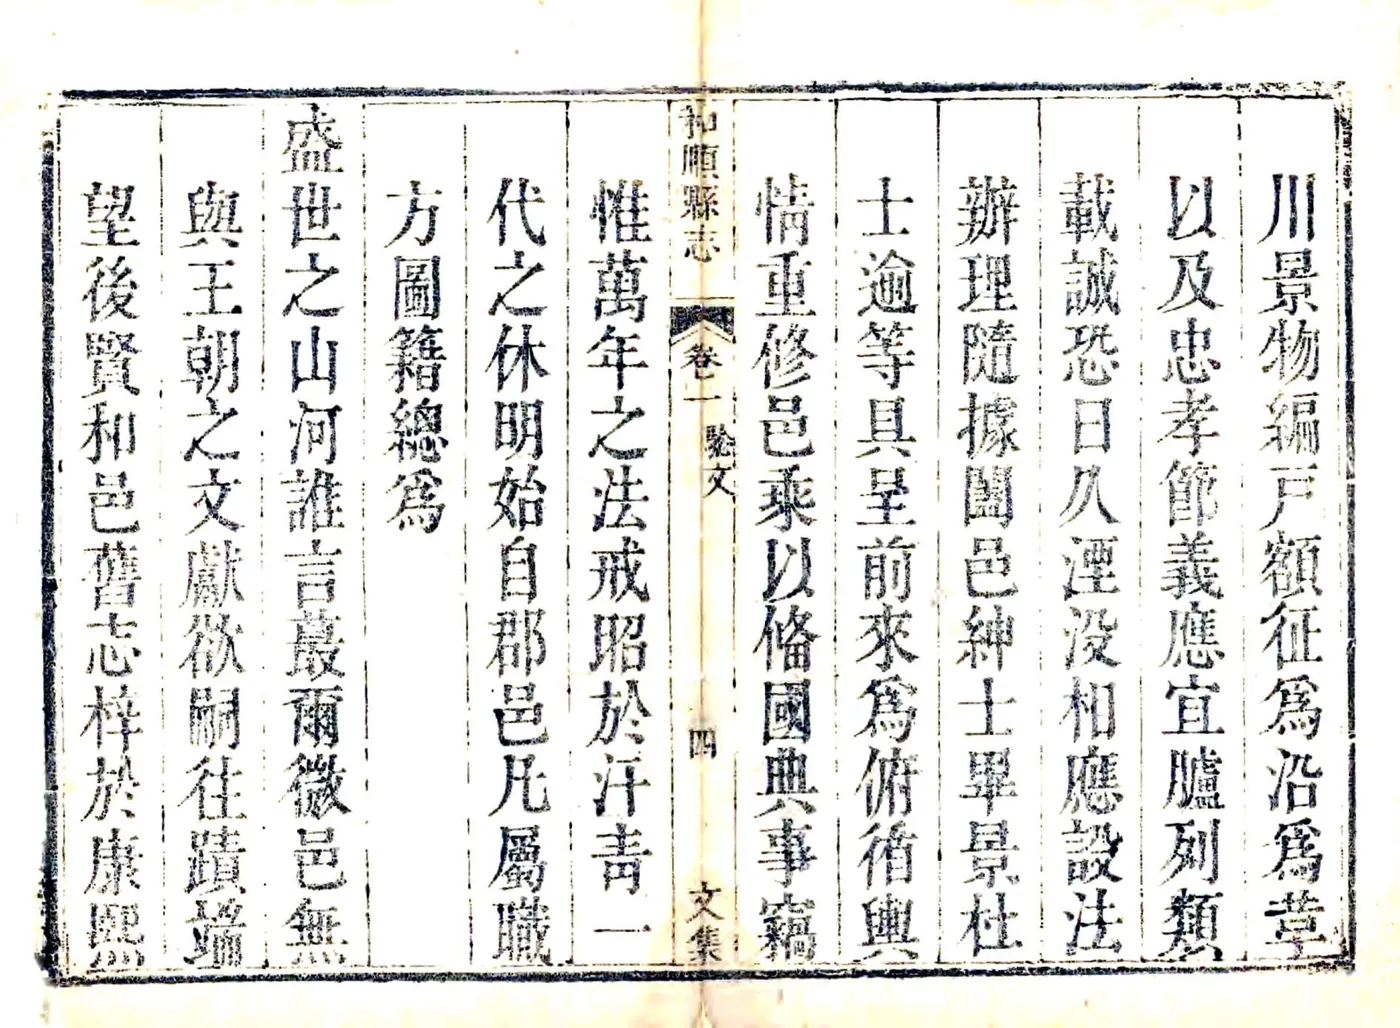 川景物編戸額征爲沿爲草
以及忠孝節義應宜臚列類
載誠恐日久湮没相應設法
辦理隨據闔邑紳士畢景杜
士逾等具呈前來爲俯循輿
情重修邑乘以俻國典事竊
和順縣志
卷一
驗文
四
文集
惟萬年之法戒昭於汗青一
代之休明始自郡邑凡屬職
方圖籍總爲
盛世之山河誰言蕞爾微邑無
與王朝之文獻欲嗣往蹟端
望後賢和邑舊志梓於康熙